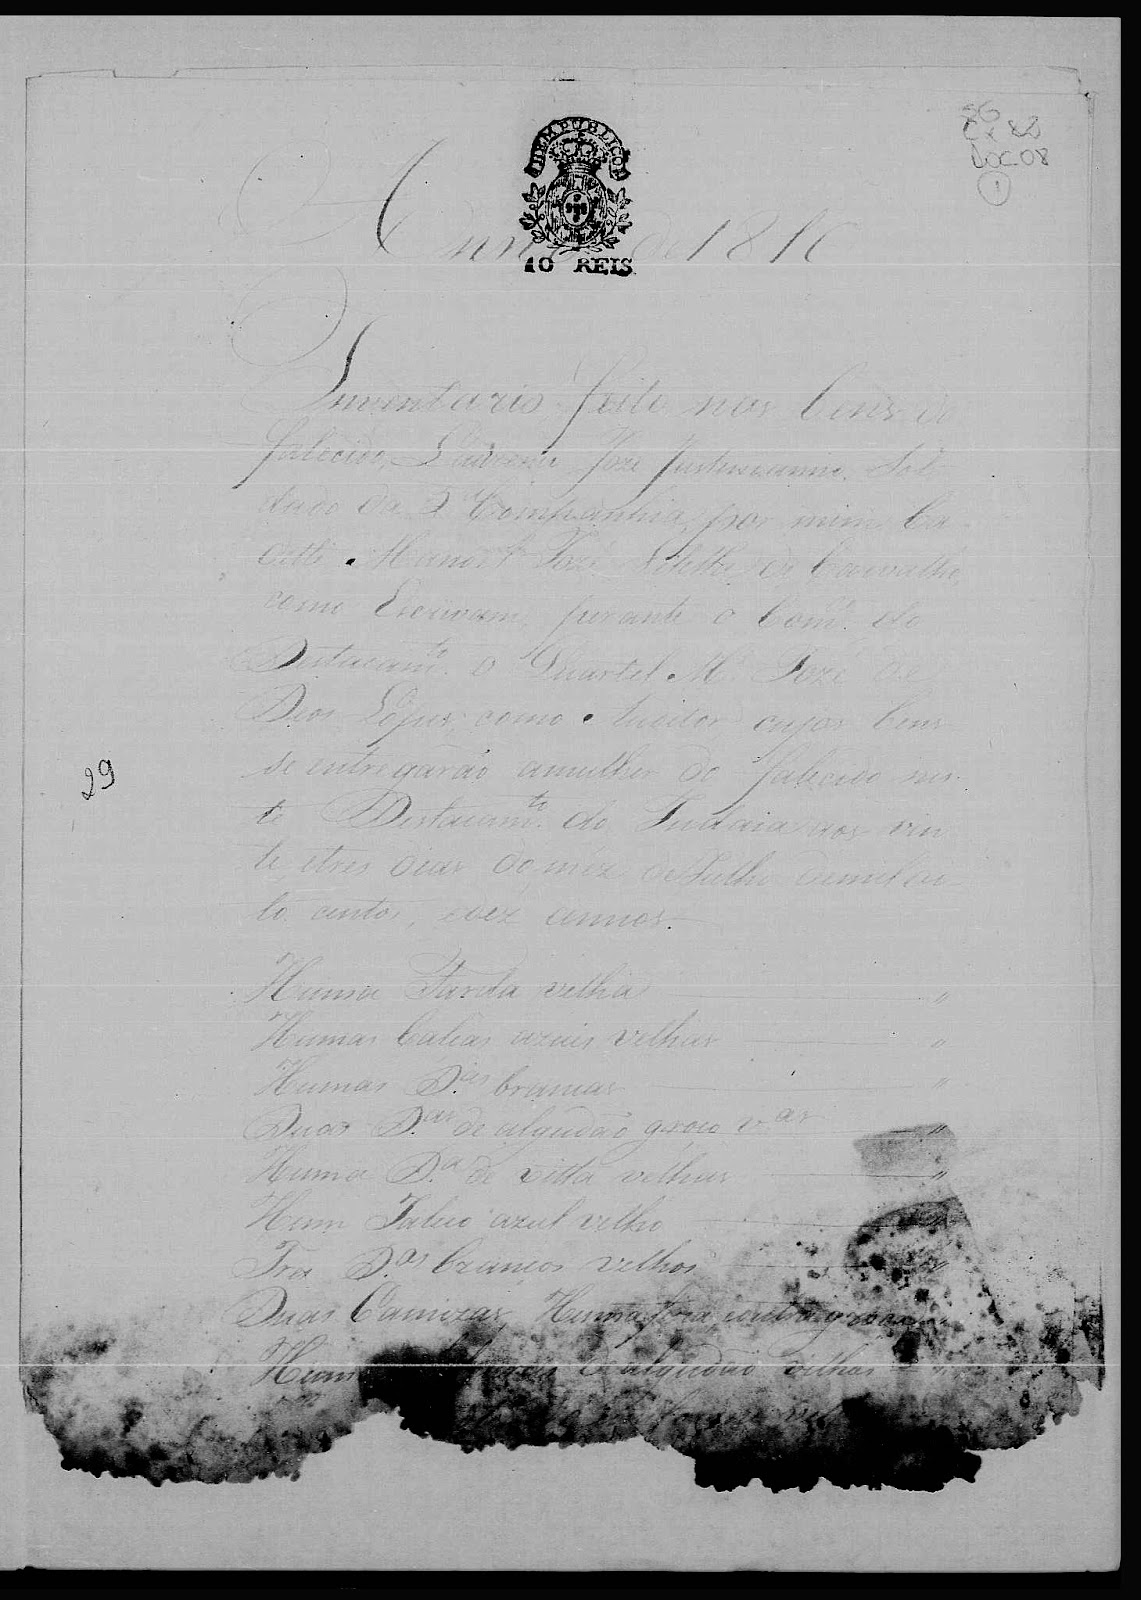 SG
Cx 88
DOC 08
1
IDEMPUBLICO
10 REIS
Anno de 1810
Inventario feito nos bens do
falecido José Justiniano Sol-
dado da 2ª Companhia, por mim Ca-
dette Manoel José de Carvalho,
como Escrivam, perante o Com.e do
Destacam.to o Quartel M.e José de
Deos Lopes, como Auditor cujos bens
se entregarão amulher do falecido nes-
te Destacam.to do Indaia aos vin
te, e tres dias do mez de Julho de mil oi-
to centos, e dez annos.
29
Huma Farda velha "
Humas Calsas azuis velhas "
Humas D.as brancas "
Duas D.as de algudão groço v.as "
Huma D.a de velhas "
Hum Jaleco azul velho "
Tres D.os brancos velhos "
Duas Camizas, Huma fina, outra groça "
Hum algudão velhas "